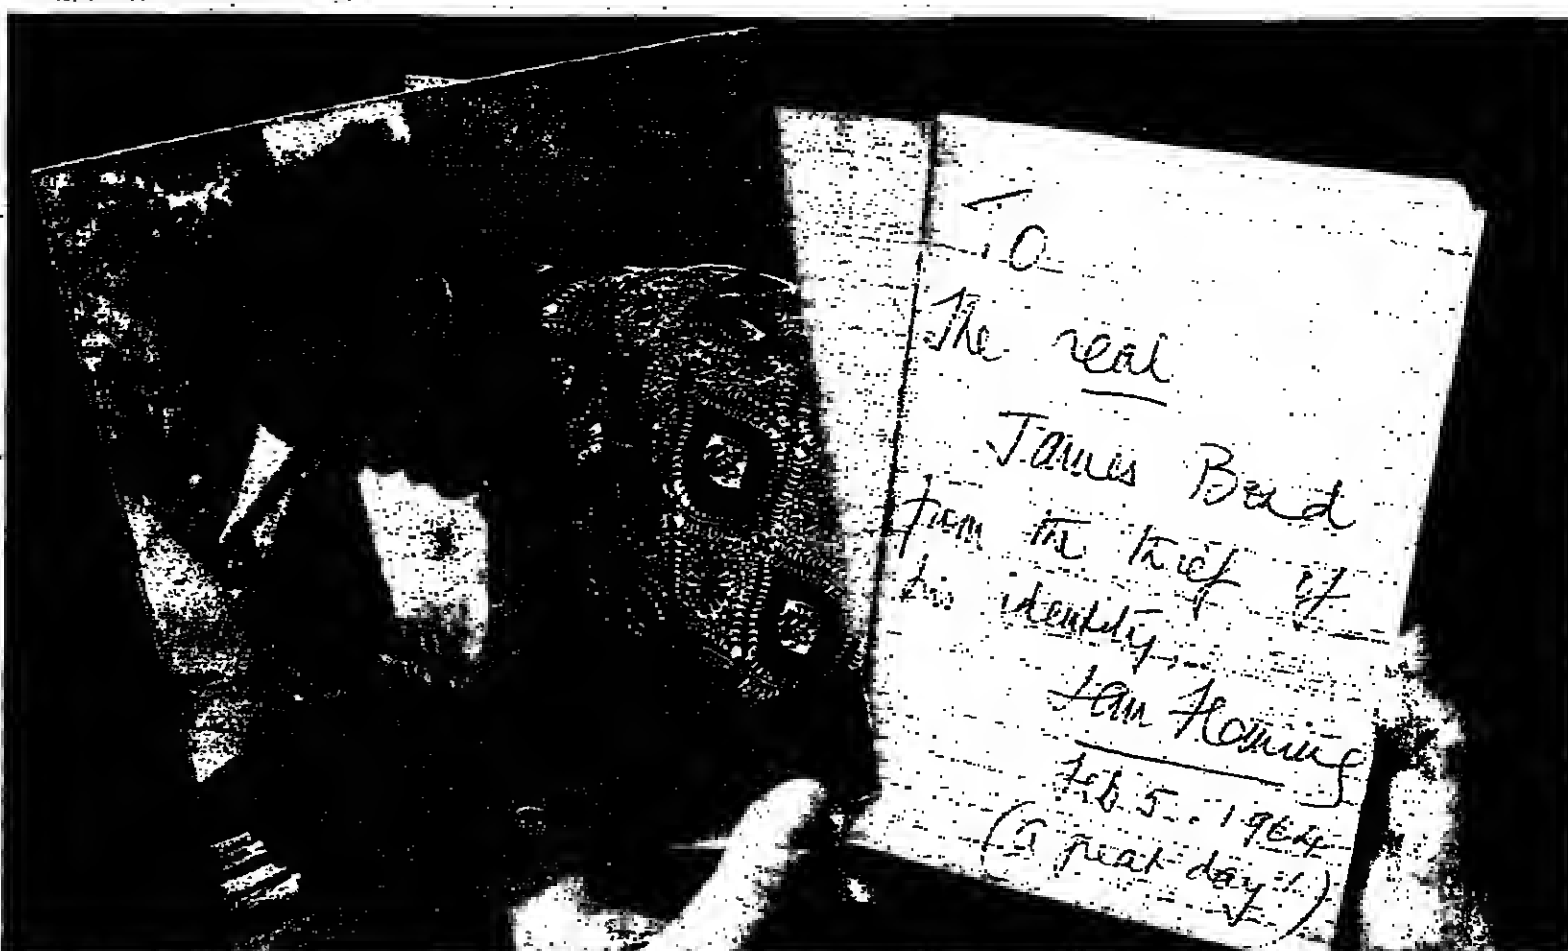 To
The real
James Bond
from the thief of
his identity.
Ian Fleming
Feb 5. 1964
(a great day!)